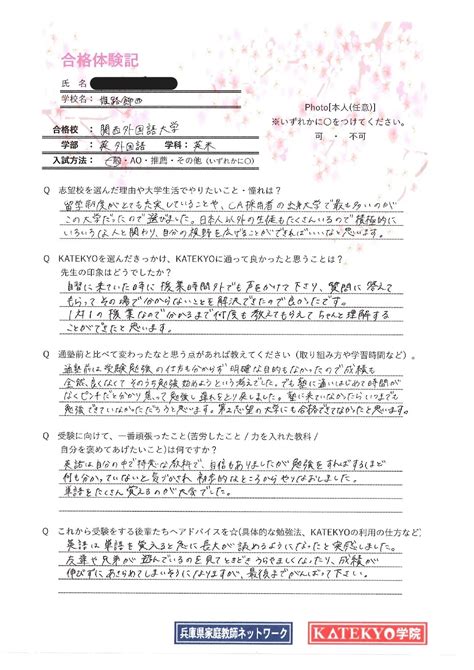 合格体験記
氏 名
学校名： 姫路飾西
Photo[本人(任意)]
※いずれかに○をつけてください。
可 ・ 不可
合格校 ： 関西外国語大学
学部 ： 英外国語 学科： 英米
入試方法： 一般・AO・推薦・その他（いずれかに○）
Q 志望校を選んだ理由や大学生活でやりたいこと・憧れは？
留学制度がとても充実していることや、CA採用者の出身大学で最も多いのが
この大学だったので選びました。日本人以外の生徒もたくさんいるので積極的に
いろいろな人と関わり、自分の視野を広げることができればいいなと思います。
Q KATEKYOを選んだきっかけ、KATEKYOに通って良かったと思うことは？
先生の印象はどうでしたか？
自習に来ていた時に授業時間外でも声をかけて下さり、質問に答えて
もらってその場で分からないことを解決できたので良かったです。
1対1の授業なので分かるまで何度も教えてもらえてちゃんと理解する
ことができたと思います。
Q 通塾前と比べて変わったなと思う点があれば教えてください（取り組み方や学習時間など）。
通塾前は受験勉強の仕方も分からず明確な目的もなかったので成績も
全然良くなくてそのうち勉強始めようという考えでした。でも塾に通いはじめて時間が
なくピンチだと分かり焦って勉強し遅れをとり戻しました。塾に来ていなかったらいつまでも
勉強できていなかっただろうと思います。第2志望の大学にも合格できてなかったと思います。
Q 受験に向けて、一番頑張ったこと(苦労したこと / 力を入れた教科 /
自分を褒めてあげたいこと)は何ですか？
英語は自分の中で得意な教科で、自信もありましたが勉強をすればするほど
何も分かっていないと気づかされ初歩的なところからやりなおしました。
単語をたくさん覚えるのが大変でした。
Q これから受験をする後輩たちへアドバイスを☆(具体的な勉強法、KATEKYOの利用の仕方など)
英語は単語を覚えると急に長文が読めるようになったと実感しました。
友達や兄弟が遊んでいるのを見てときどきうらやましくなったり、成績が
伸びずにあきらめてしまいそうになりますが、最後までがんばって下さい。
兵庫県家庭教師ネットワーク
KATEKYO学院